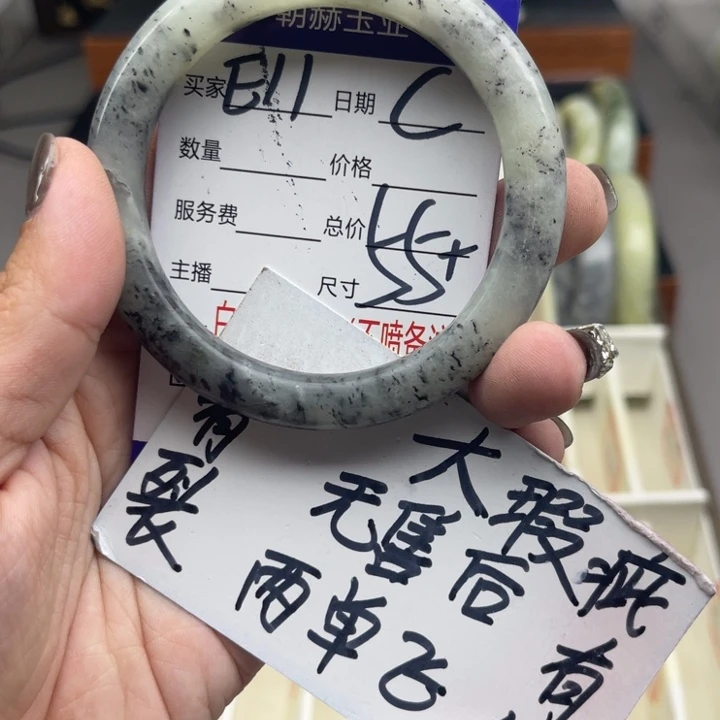 朝赫玉业
买家 E11 日期 C
数量 价格
服务费 总价
主播 尺寸 55+
有裂
大瑕疵
无售后
有
两单飞